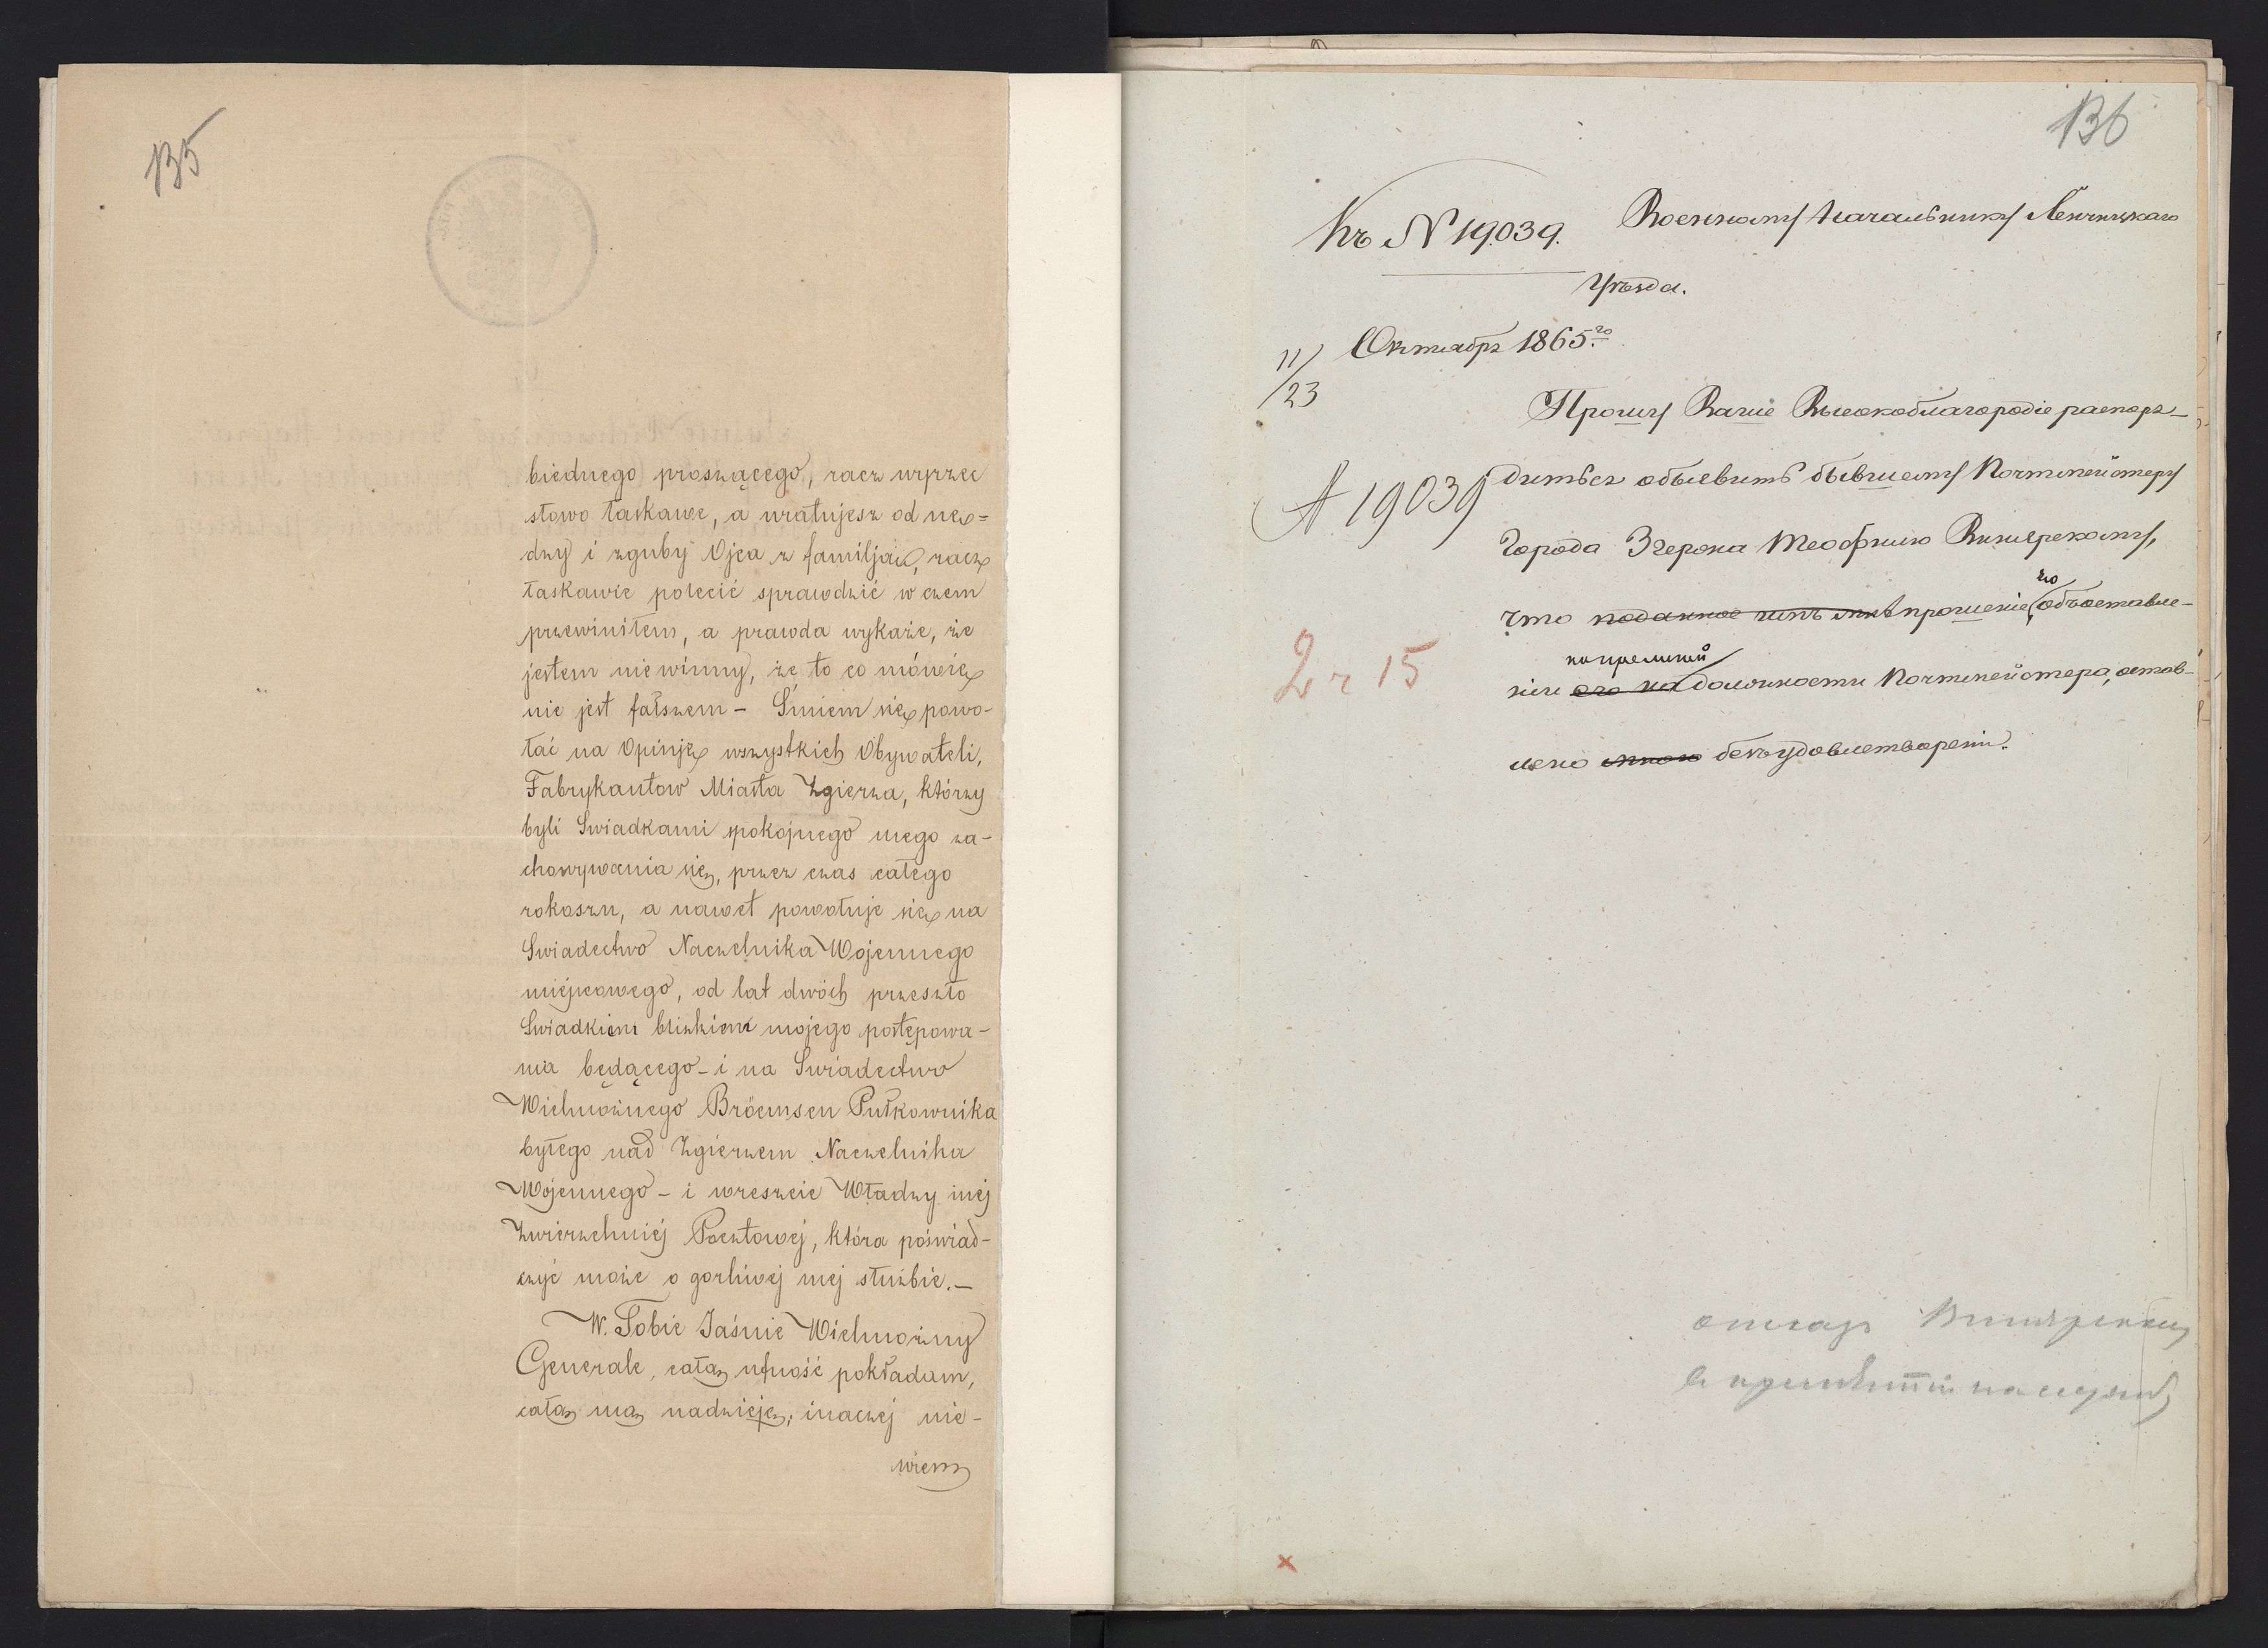 135
biednego proszącego, racz wyrzec
słowo łaskawe, a uratujesz od nę=
dzy i zguby Ojca z familją, racz
łaskawie polecić sprawdzić w czem
przewiniłem, a prawda wykaże, że
jestem niewinny, że to co mówię
nie jest fałszem – Śmiem się powo-
łać na Opinję wszystkich Obywateli,
Fabrykantow Miasta Zgierza, którzy
byli Swiadkami spokojnego mego za-
chowywania się, przez czas całego
rokoszu, a nawet powołuje się na
Swiadectwo Naczelnika Wojennego
miéjscowego, od lat dwóch przeszło
Swiadkiem blizkiem mojego postępowa-
nia będącego – i na Swiadectwo
Wielmożnego Bröemsen Pułkownika
byłego nad Zgierzem Naczelnika
Wojennego – i wreszcie Władzy mej
Zwierzchniéj Pocztowej, która poświad-
czyć może o gorliwej mej służbie. –
W. Tobie Jaśnie Wielmożny
Generale, całą ufność pokładam,
całą mą nadzieję, inaczej nie-
wiem
136
Къ N 19039. Военному Начальнику Ленчицкаго
Уѣзда.
11/23 Октября 1865.го
Прошу Ваше Высокоблагородіе распоря-
N 19039 диться объявить бывшему Почтмейстеру
города Згержа Теофилю Вишнярскому,
что поданное имъ мнѣ прошеніе его объ оставле-
ніи его на попрежней должности Почтмейстера, остав-
лено мною безъ удовлетворенія.
2 r 15